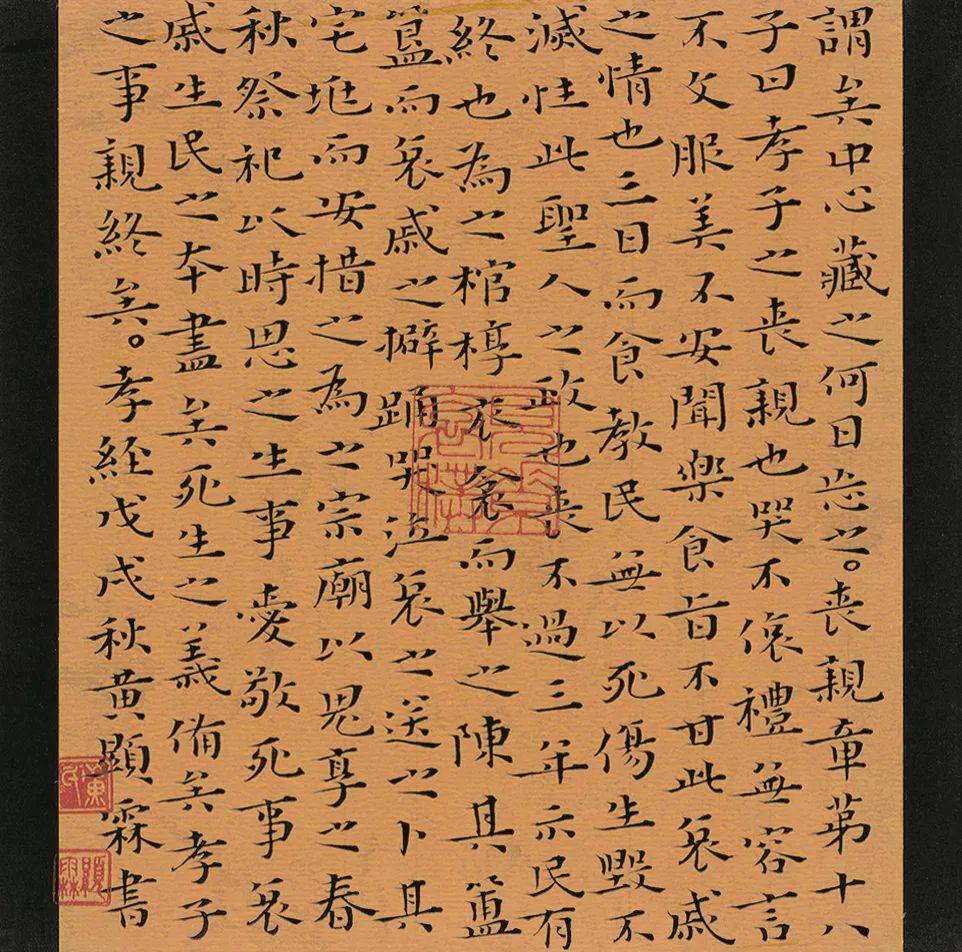 謂矣中心藏之何日忘之。喪親章第十八
子曰孝子之喪親也哭不偯禮無容言
不文服美不安聞樂食旨不甘此哀戚
之情也三日而食教民無以死傷生毀不
滅性此聖人之政也喪不過三年示民有
終也為之棺椁衣衾而舉之陳其簠
簋而哀戚之擗踊哭泣哀之送之卜其
宅垗而安措之為之宗廟以鬼享之春
秋祭祀以時思之生事愛敬死事哀
戚生民之本盡矣死生之義備矣孝子
之事親終矣。孝經戊戌秋黃顯霖書
黃氏
顯霖